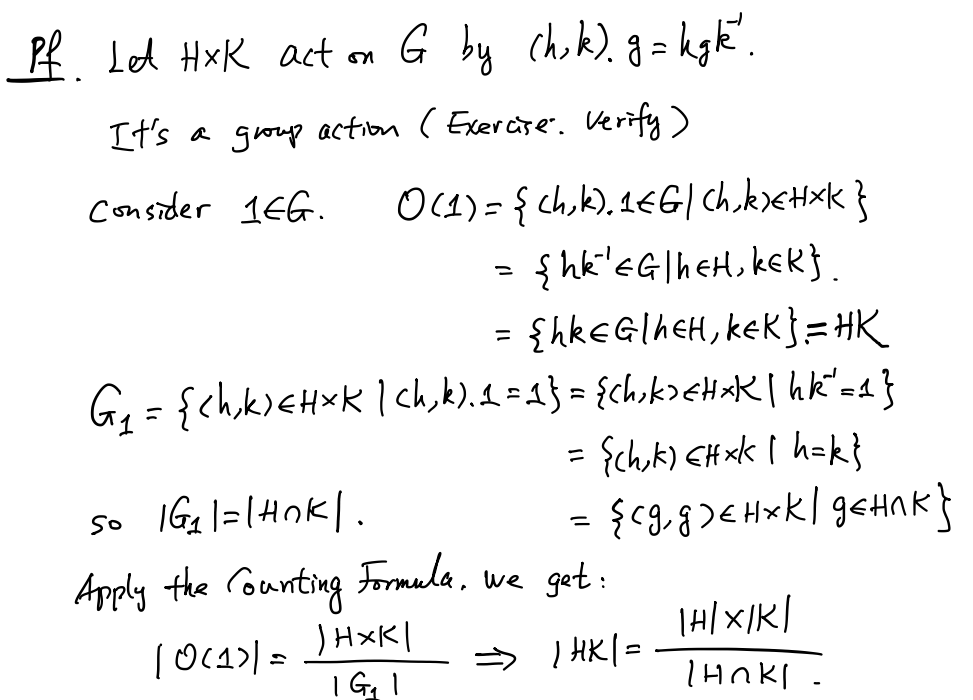 Pf. Let H×K act on G by (h,k). g = hgk⁻¹.
It's a group action (Exercise. Verify)
Consider 1∈G. O(1) = {(h,k).1∈G | (h,k)∈H×K}
= {hk⁻¹∈G | h∈H, k∈K}.
= {hk∈G | h∈H, k∈K} = HK
G₁ = {(h,k)∈H×K | (h,k).1=1} = {(h,k)∈H×K | hk⁻¹=1}
= {(h,k)∈H×K | h=k}
so |G₁|=|H∩K|. = {(g,g)∈H×K | g∈H∩K}
Apply the Counting Formula. we get:
|O(1)| = |H×K| / |G₁| ⇒ |HK| = |H|×|K| / |H∩K|.